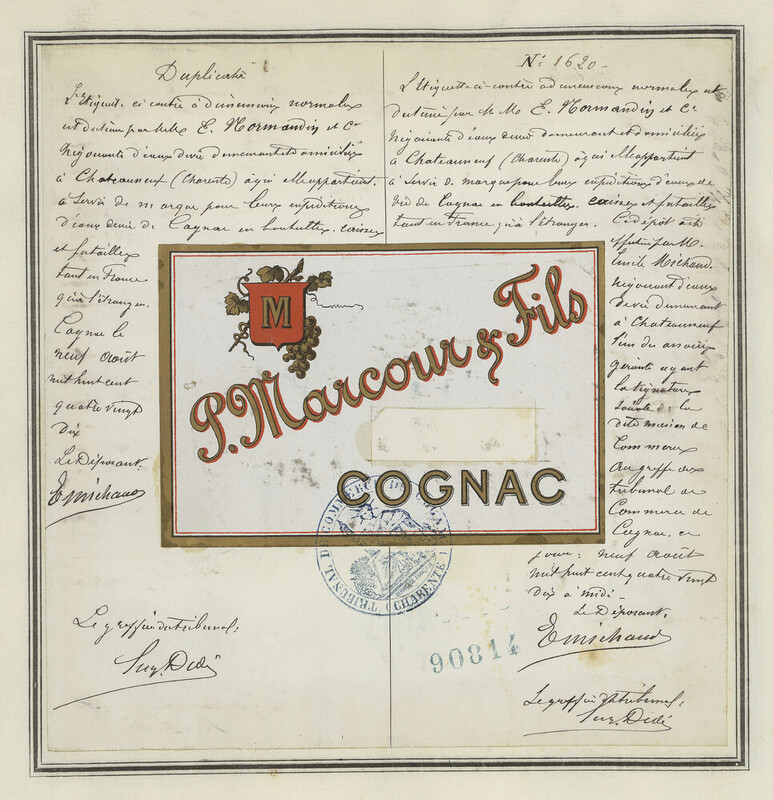 Duplicata
L'Etiquette ci contre à dimensions normales
est detenue par MM. E. Normandin et Cie
Négociants d'eaux de vie demeurant et domiciliés
à Chateauneuf (Charente) à qui elle appartient.
à Servir de marque pour leurs expéditions
d'eaux de vie de Cognac en bouteilles, caisses
et futailles
tant en France
qu'à l'étranger.
Cognac le
neuf Août
mil huit cent
quatre vingt
dix
Le Déposant.
E michaud
Le greffier du tribunal:
N° 1620 -
L'Etiquette ci-contre à dimensions normales est
par MM E. Normandin et Cie
Négociants d'eaux de vie demeurant et domiciliés
à Chateauneuf (Charente) à qui elle appartient
à Servir de marque pour leurs expéditions d'eaux de
vie de Cognac en bouteilles, caisses et futailles
tant en France qu'à l'étranger. Ce dépôt a été
effectué par M.
Emile Michaud.
négociant d'eaux
de vie demeurant
à Chateauneuf
l'un des associés
gérants ayant
la signature
sociale de la
dite maison de
Commerce
Au greffe du
tribunal de
Commerce de
Cognac, ce
jour: neuf Août
mil huit cent quatre vingt
dix à midi -
Le Déposant.
E michaud
Le greffier du tribunal:
M
P. Marcour & Fils
COGNAC
TRIBUNAL DE COMMERCE DE COGNAC (CHARENTE)
90814